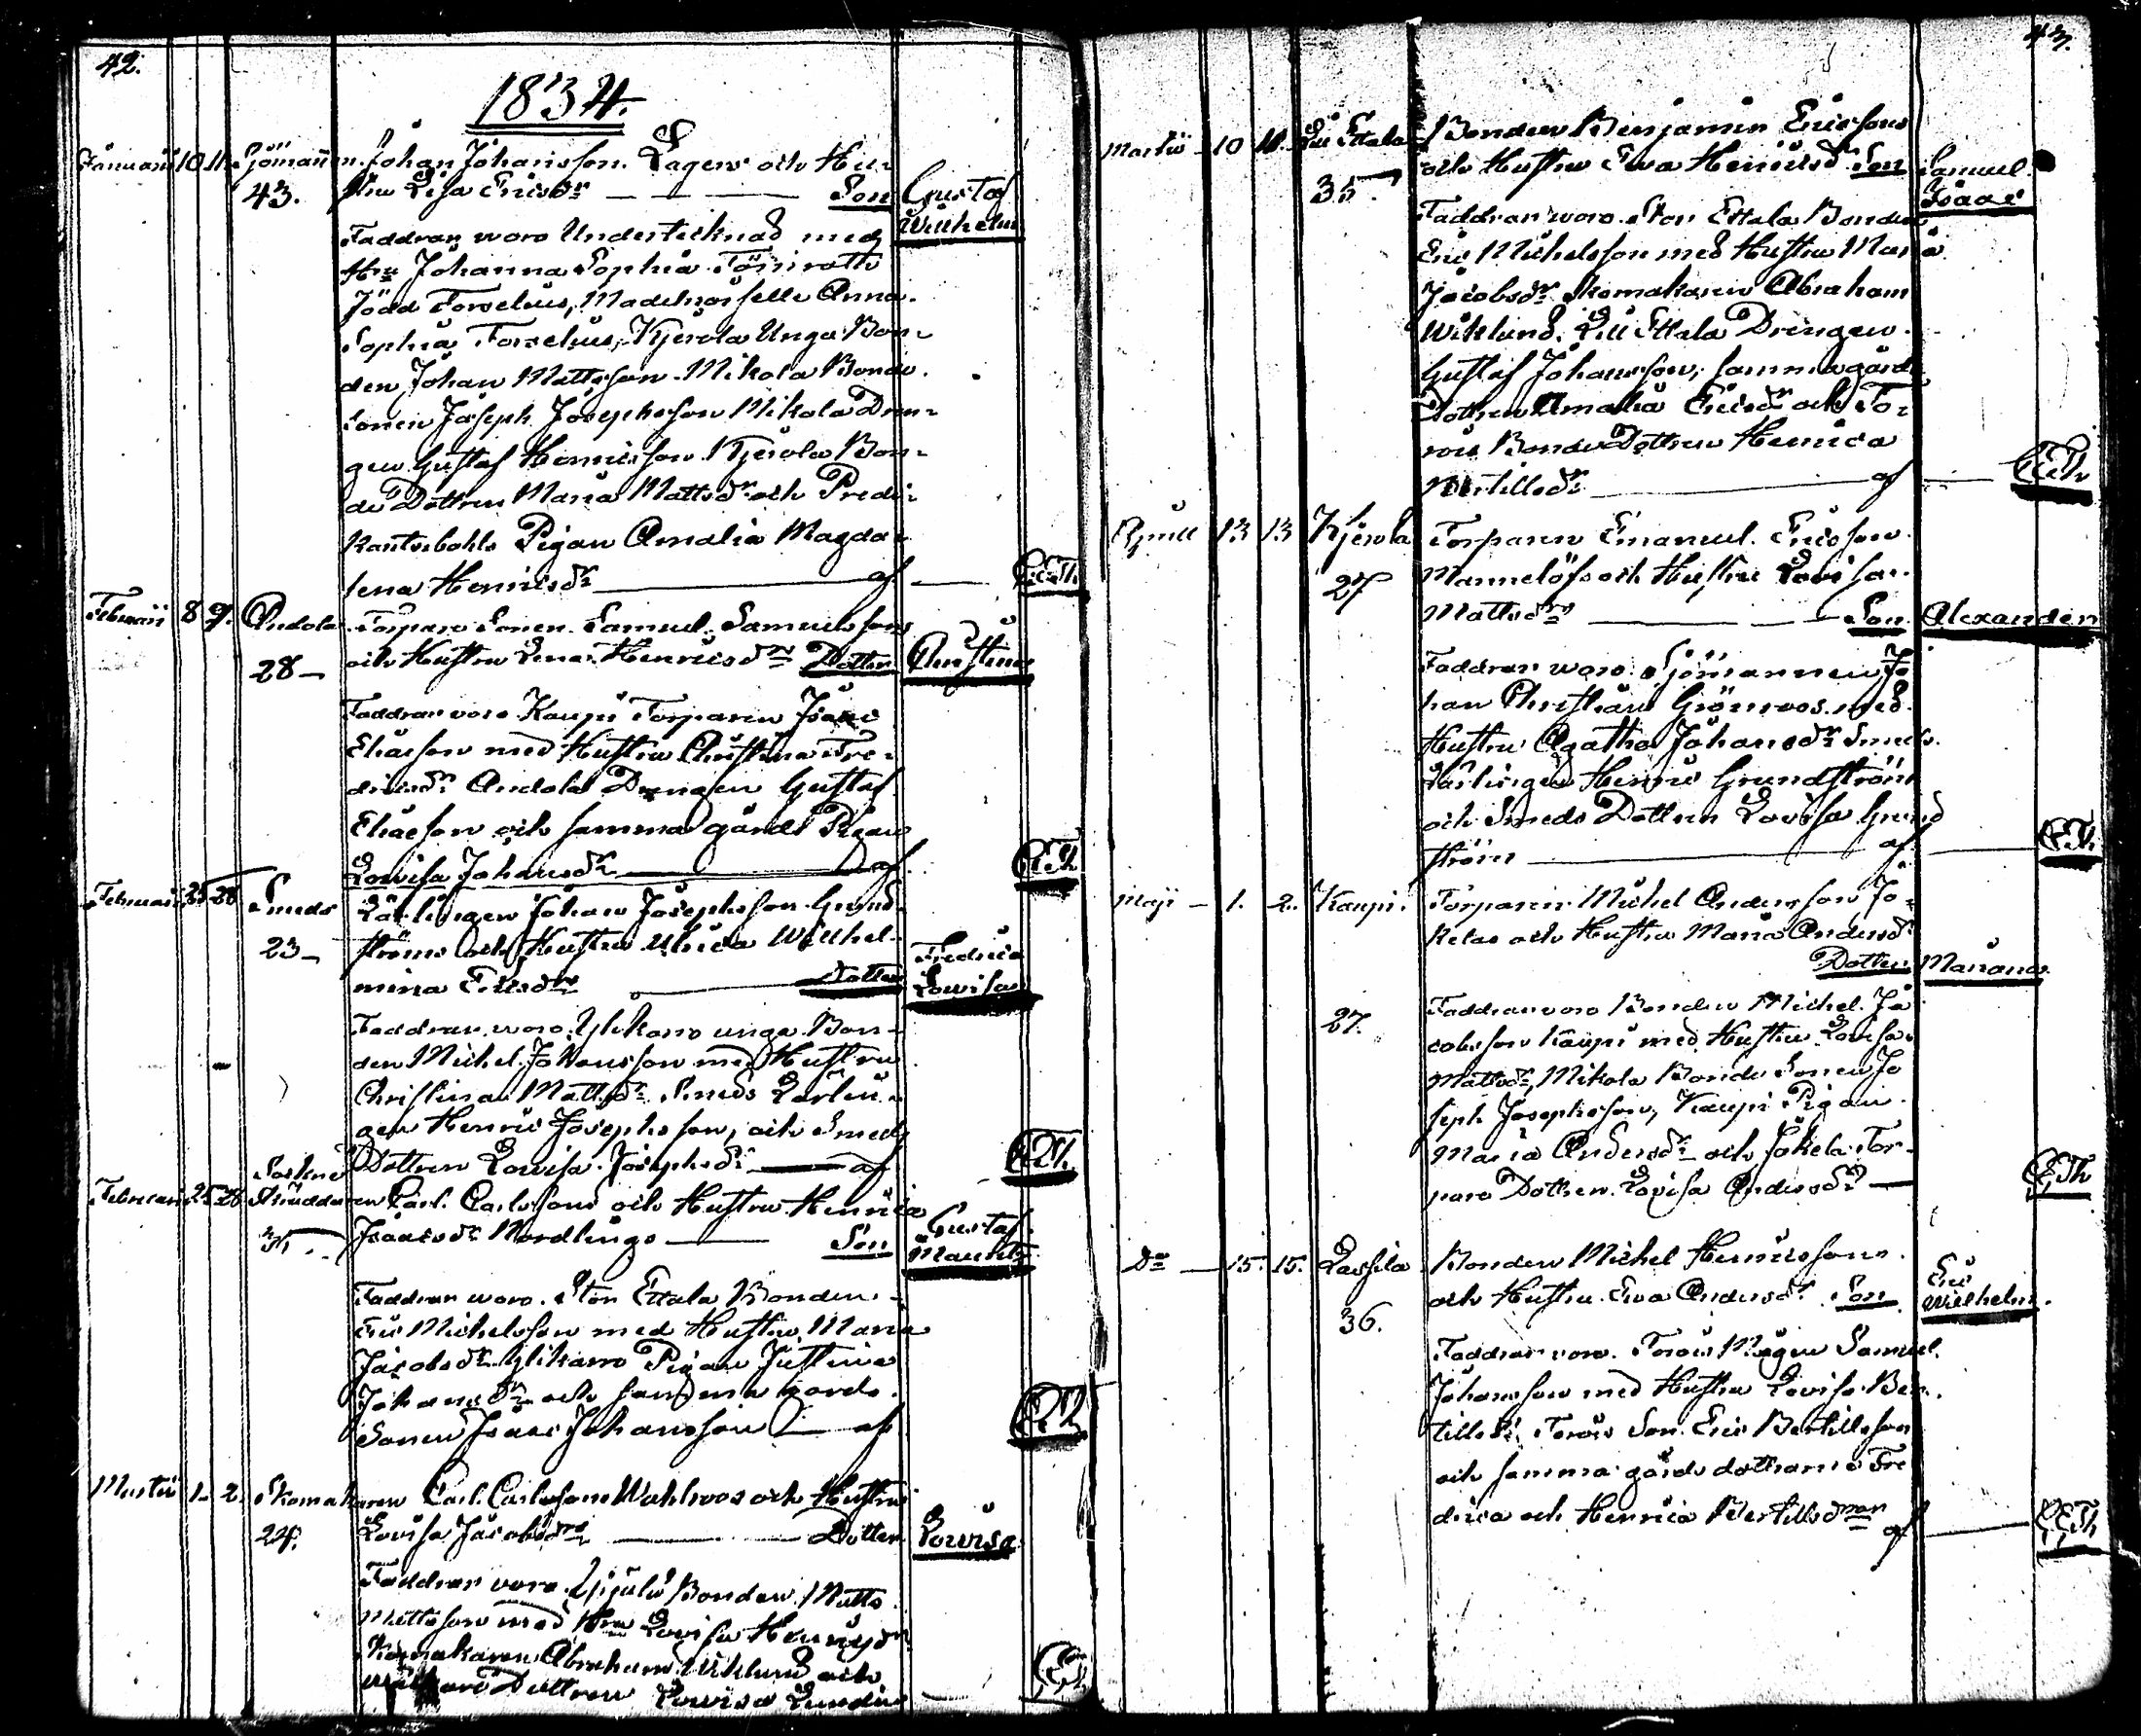 42.
1834.
Januarii 10 11. Sjöman Johan Johansson Lagers och Hu-
43. stru Lisa Ericsdr Son Gustaf
Wilhelm
Faddrar woro Undertecknad med
Hru Johanna Sophia Törnroth
född Forselius, Mademoiselle Anna
Sophia Forselius, Kjerola Unga Bon-
den Johan Mattsson Mikola Bonde
Sonen Joseph Josephsson Mikola Dren-
gen Gustaf Henricsson Kjerola Bon-
de Dottren Maria Mattsdr och Predi-
kantsbohls Pigan Amalia Magda-
lena Henricsdr af
Februarii 8 9. Andola Torpare Sonen Samuel Samuelssons
28 och Hustru Lena Henricsdr Dotter Christina
Faddrar voro Kaupi Torparen Isaac
Eliasson med Hustru Christina Fre-
dricsdr Andola Drengen Gustaf
Eliasson och samma gårds Pigan
Lovisa Johansdr af
Februarii 25 28 Smeds Lärlingen Johan Josephsson Grund-
23 ströms och Hustru Ulrica Willhel-
mina Ericsdr Dotter Fredrica
Lowisa
Faddrar woro Ylikars unga Bon-
den Michel Johansson med Hustru
Christina Mattsdr Smeds Lärlin-
gen Henric Josephsson, och Smeds
Dottren Lowisa Josephsdr af
Sockne
Februarii 25 26 Skräddaren Carl Carlssons och Hustru Henrica
35 Isaacsdr Nordlings Son Gustaf
Mauritz
Faddrar woro Stor Ettala Bonden
Eric Michelsson med Hustru Maria
Jacobsdr Ylikars Pigan Justina
Johansdr och samma gårds
Sonen Isaac Johansson af
Martii 1. 2. Skomakaren Carl Carlssons Wahlroos och Hustru
Lovisa Jacobsdr Dotter Lovisa
Faddrar voro Bonden Matts
Mattsson med Hru Lovisa Henricsdr
Skomakaren Abraham Wiklund och
Dottren Lowisa Lundin
43.
Martii 10 11. Lill Ettala Bonden Benjamin Ericssons
35. och Hustru Ewa Henricsdr Son Samuel
Isaac
Faddrar woro Stor Ettala Bonden
Eric Michelsson med Hustru Maria
Jacobsdr Skomakaren Abraham
Wiklund, Lill Ettala Drengen
Gustaf Johansson, samma gårds
Dottren Amalia Ericsdr och To-
rois Bonde Dottren Henrica
Bertillsdr af
Aprill 13 13 Kjerola Torparen Emanuel Ericsson
27 Mannelöfs och Hustru Lovisa
Mattsdr Son Alexander
Faddrar woro Sjömannen Jo-
han Christian Grönroos med
Hustru Agatha Johansdr Smeds
Lärlingen Henric Grundström
och Smeds Dottren Lovisa Grund
ström af
Maji 1. 2. Kaupi Torparen Michel Andersson Jo-
kelas och Hustru Maria Andersdr
Dotter Mariana
27. Faddrar voro Bonden Michel Ja
cobsson Kaupi med Hustru Lovisa
Mattsdr, Mikola Bonde Sonen Jo
seph Josephsson, Kaupi Pigan
Maria Andersdr och Jokela Tor-
pare Dottren Lovisa Andersdr
Do 15. 15. Lassila Bonden Michel Henricssons
36. och Hustru Eva Andersdr Son Eric
Wilhelm.
Faddrar voro Torois Mågen Samuel
Johansson med Hustru Lovisa Ber-
tillsdr Torois Son Eric Bertillsson
och samma gårds dottrarne Fre
drica och Henrica Bertillsdr af